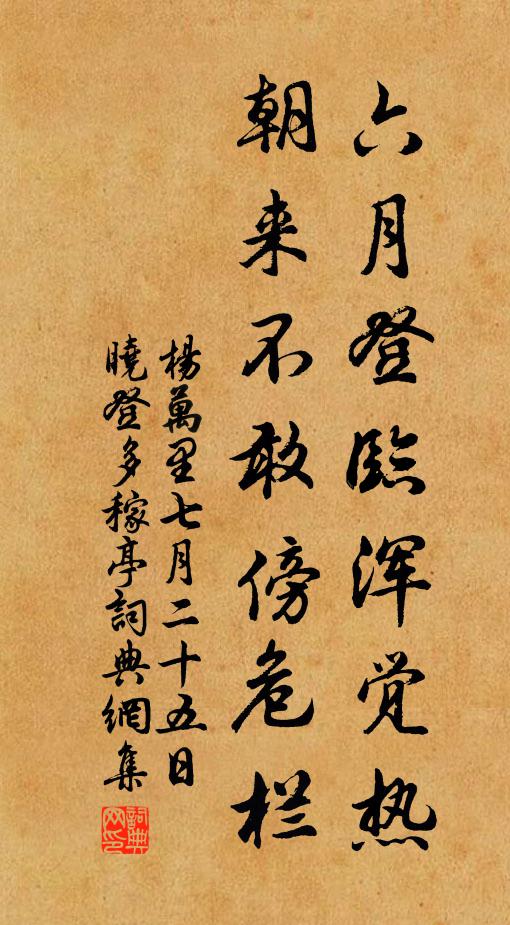 六月登臨浑觉热
朝来不敢傍危栏
楊萬里七月二十五日
曉登多稼亭詞典網集
詞典
网印